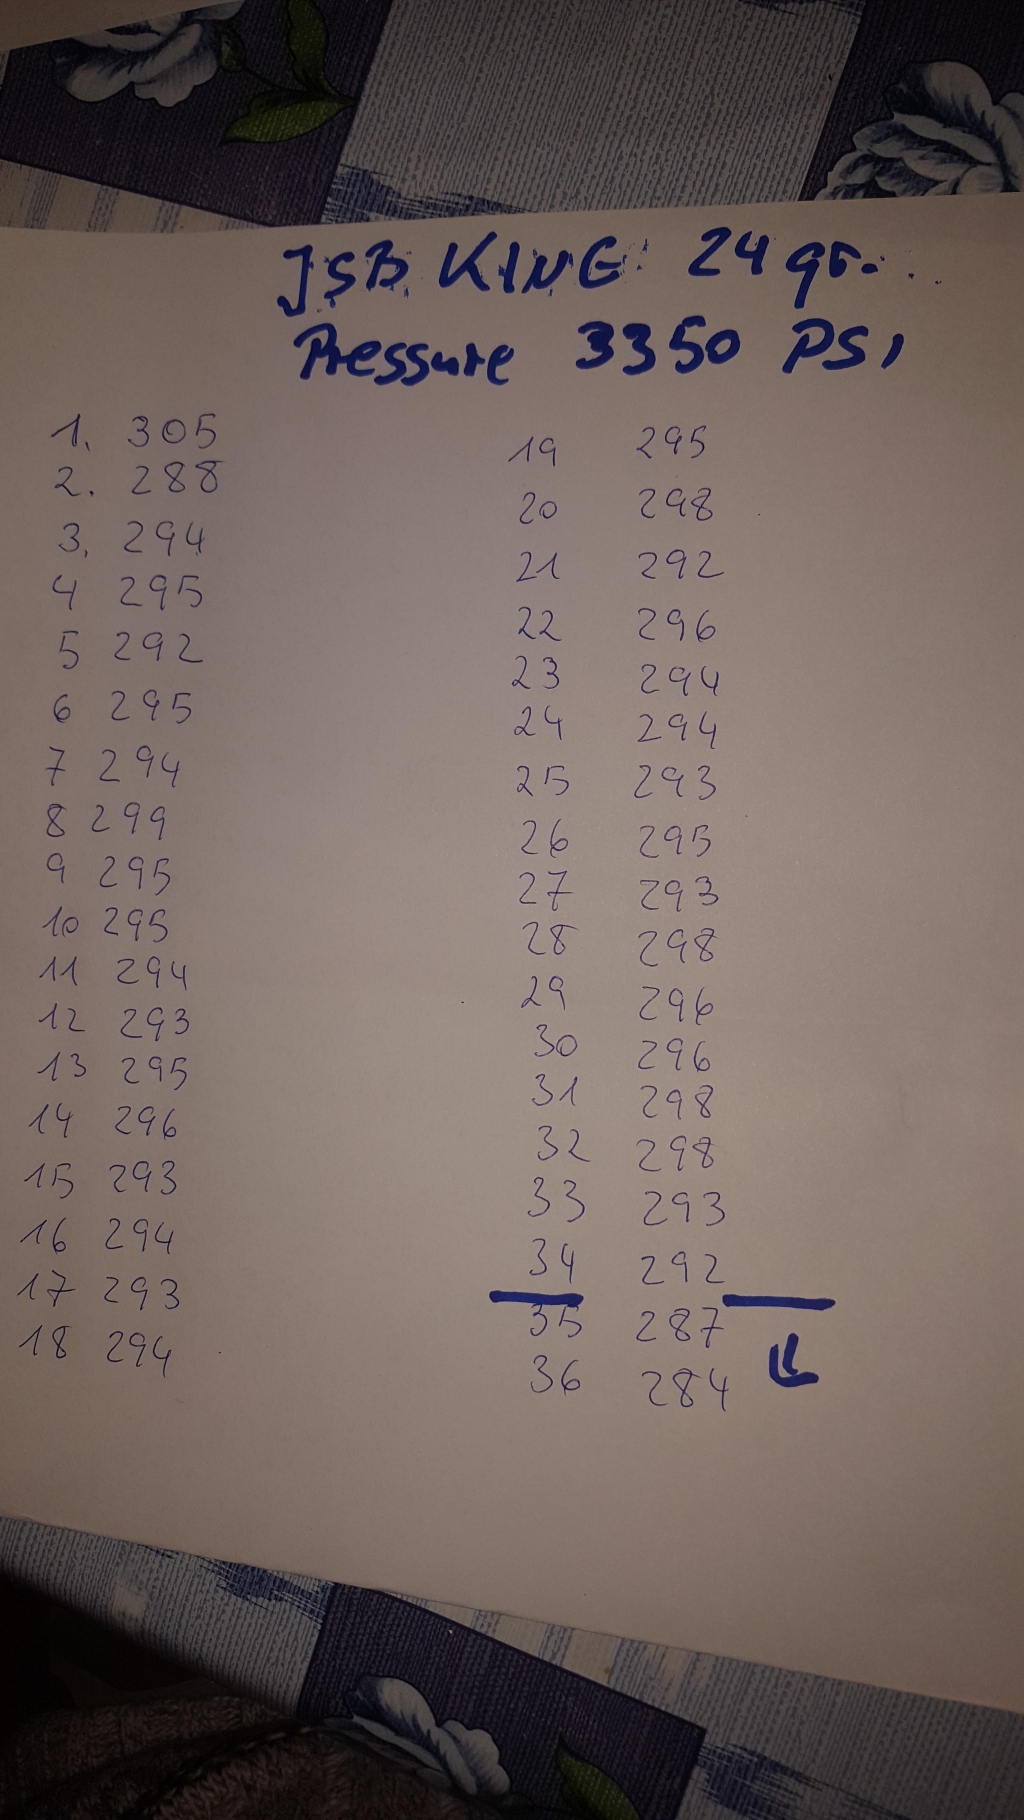 JSB KING 24 gr.
Pressure 3350 PSI
1. 305
2. 288
3. 294
4 295
5 292
6 295
7 294
8 299
9 295
10 295
11 294
12 293
13 295
14 296
15 293
16 294
17 293
18 294
19 295
20 298
21 292
22 296
23 294
24 294
25 293
26 295
27 293
28 298
29 296
30 296
31 298
32 298
33 293
34 292
35 287
36 284